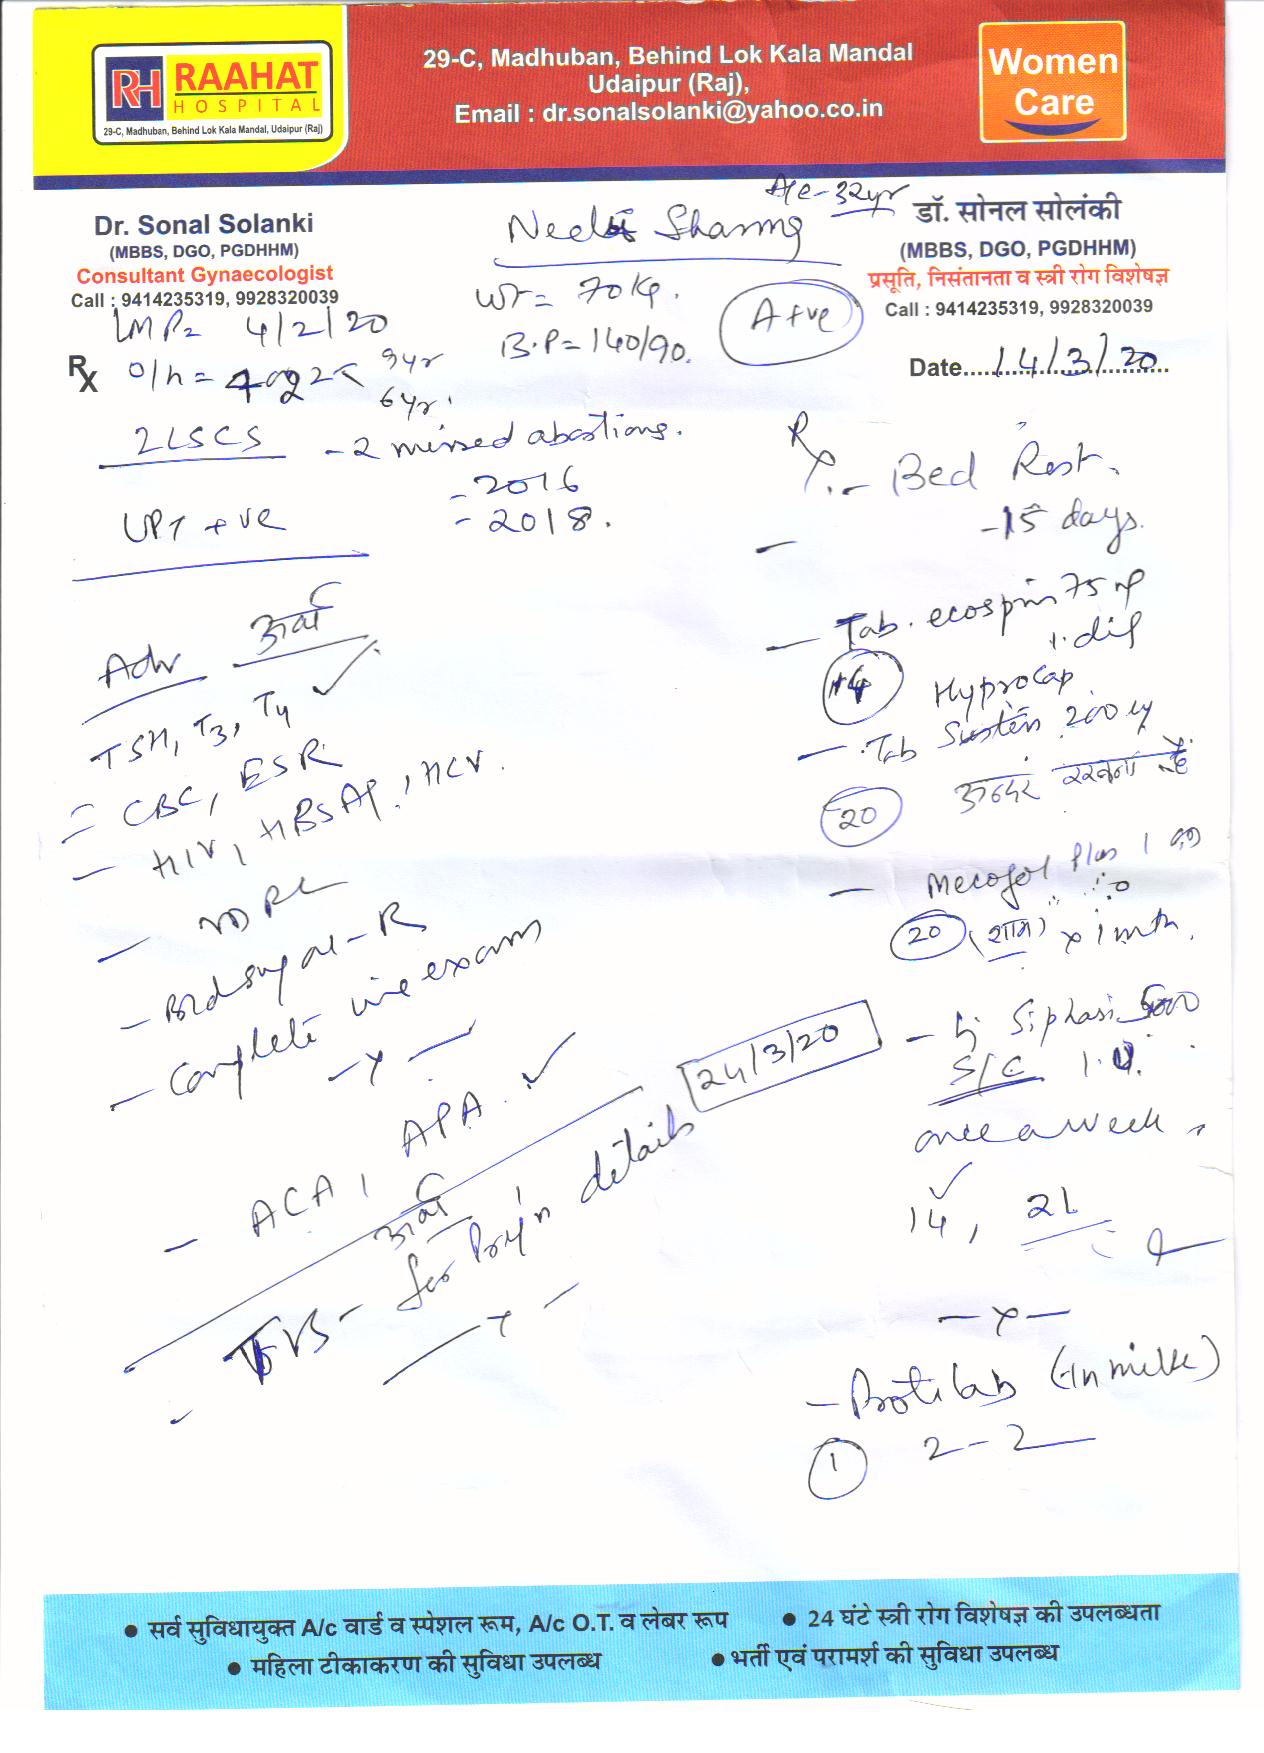 RH RAAHAT
HOSPITAL
29-C, Madhuban, Behind Lok Kala Mandal, Udaipur (Raj)
29-C, Madhuban, Behind Lok Kala Mandal
Udaipur (Raj),
Email : dr.sonalsolanki@yahoo.co.in
Women
Care
Dr. Sonal Solanki
(MBBS, DGO, PGDHHM)
Consultant Gynaecologist
Call : 9414235319, 9928320039
Sharma
32yr
Wt = 70 Kg.
B.P = 140/90.
A +ve
डॉ. सोनल सोलंकी
(MBBS, DGO, PGDHHM)
प्रसूति, निसंतानता व स्त्री रोग विशेषज्ञ
Call : 9414235319, 9928320039
Date 14/3/20
LMP= 4/2/20
Rx O/h = 9yr
6yr.
2LSCS - 2 missed abortions.
- 2016
- 2018.
UPT +ve
Adv
TSH, T3, T4
CBC, ESR
- HIV, HBSAg, HCV.
- VDRL
- Blood sugar - R
- Complete urine exam
- x -
- ACA, APA
TVS - for details 24/3/20
- x -
Rx. - Bed Rest.
- 15 days.
- Tab. ecosprin 75 mg
14
- Tab Susten 200 mg
अन्दर रखना है
20
- Mecofol Plus 1
20 (शाम) x 1 mth.
- 5000
S/C
once a week
14, 21
- x -
- (In milk)
1 2 - 2
• सर्व सुविधायुक्त A/c वार्ड व स्पेशल रूम, A/c O.T. व लेबर रूप
• 24 घंटे स्त्री रोग विशेषज्ञ की उपलब्धता
• महिला टीकाकरण की सुविधा उपलब्ध
• भर्ती एवं परामर्श की सुविधा उपलब्ध